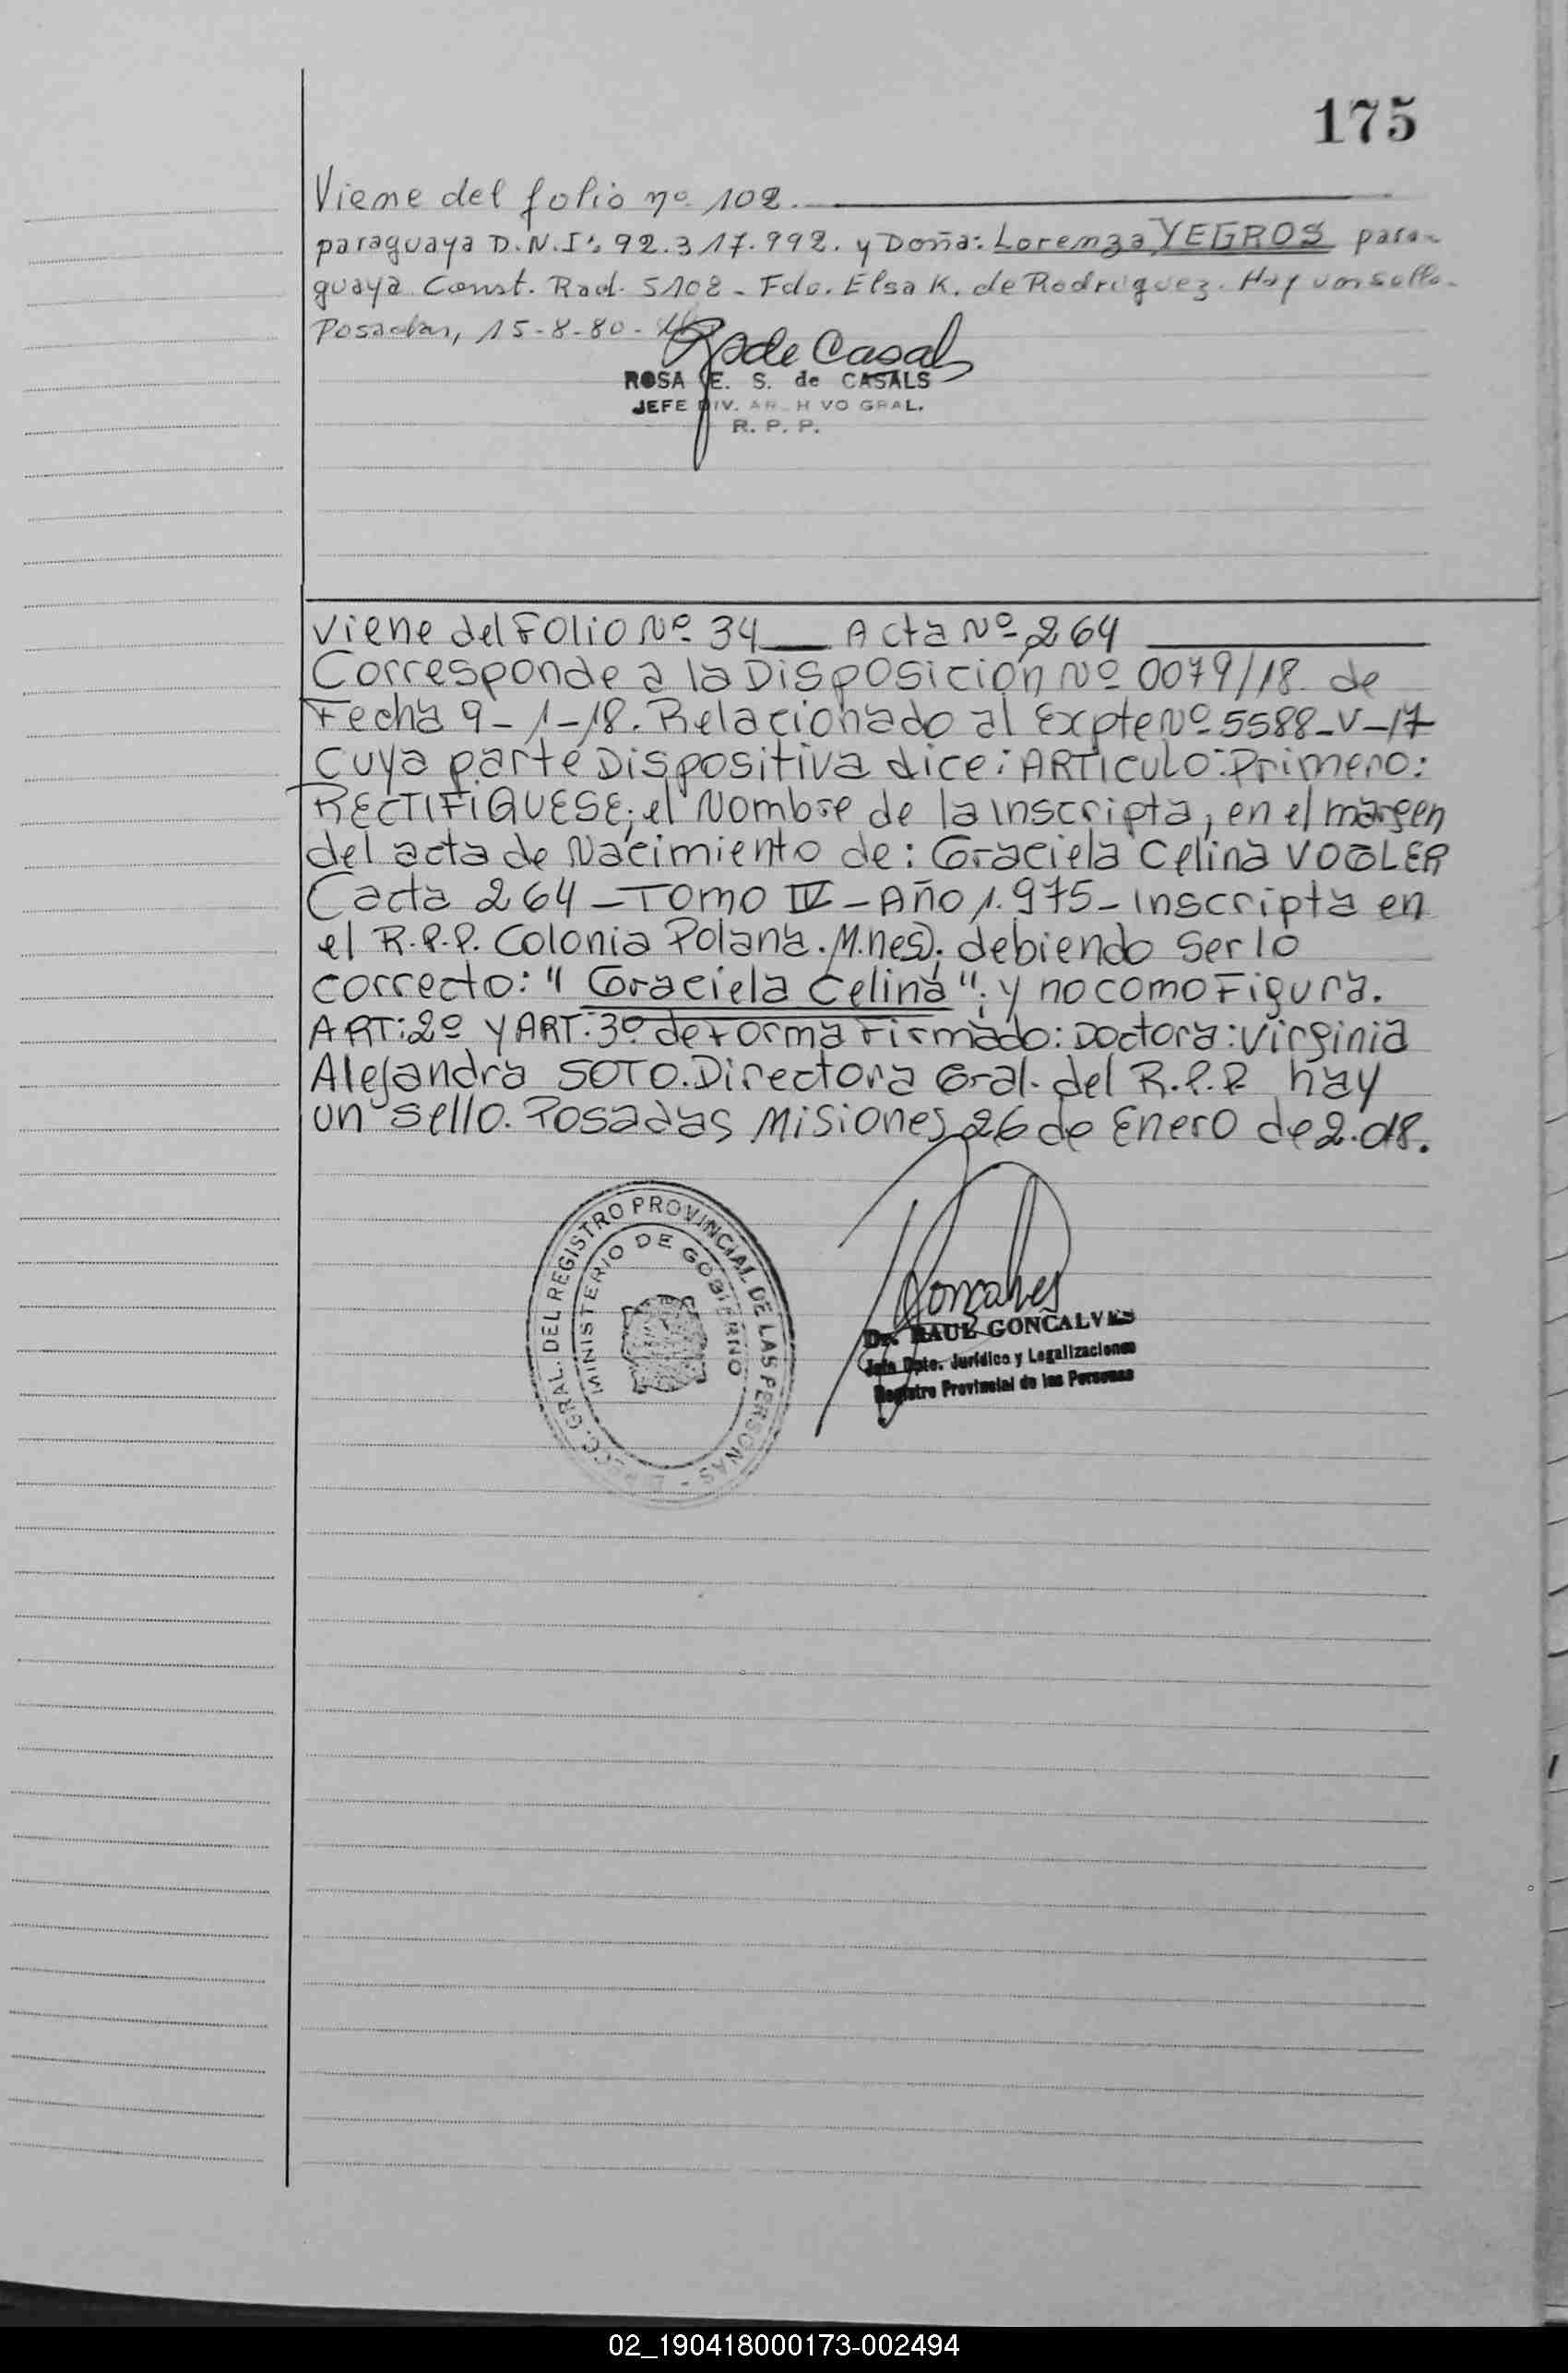 175
Viene del folio nº 102.
paraguaya D.N.I: 92.317.992. y Doña: Lorenza YEGROS para-
guaya Const. Rad. 5102 - Fdo. Elsa K. de Rodriguez. Hay un sello.
Posadas, 15-8-80-
R de Casals
ROSA E. S. de CASALS
JEFE DIV. AR H VO GRAL.
R. P. P.
Viene del Folio Nº 34 Acta Nº 264
Corresponde a la Disposición Nº 0079/18. de
Fecha 9-1-18. Relacionado al Expte Nº 5588-V-17
cuya parte Dispositiva dice: ARTICULO: Primero:
RECTIFIQUESE; el Nombre de la inscripta, en el margen
del acta de Nacimiento de: Graciela Celina VOGLER
(acta 264 - TOMO IV - Año 1.975 - inscripta en
el R.P.P. Colonia Polana. M.nes); debiendo ser lo
correcto: "Graciela Celina"; y no como Figura.
ART: 2º Y ART: 3º de Forma Firmado: Doctora: Virginia
Alejandra SOTO. Directora Gral. del R.P.P. hay
un sello. Posadas Misiones, 26 de Enero de 2.018.
GRAL. DEL REGISTRO PROVINCIAL DE LAS PERSONAS
MINISTERIO DE GOBIERNO
Goncalves
Dr. RAUL GONCALVES
Jefe Dpto. Jurídico y Legalizaciones
Registro Provincial de las Personas
02_190418000173-002494